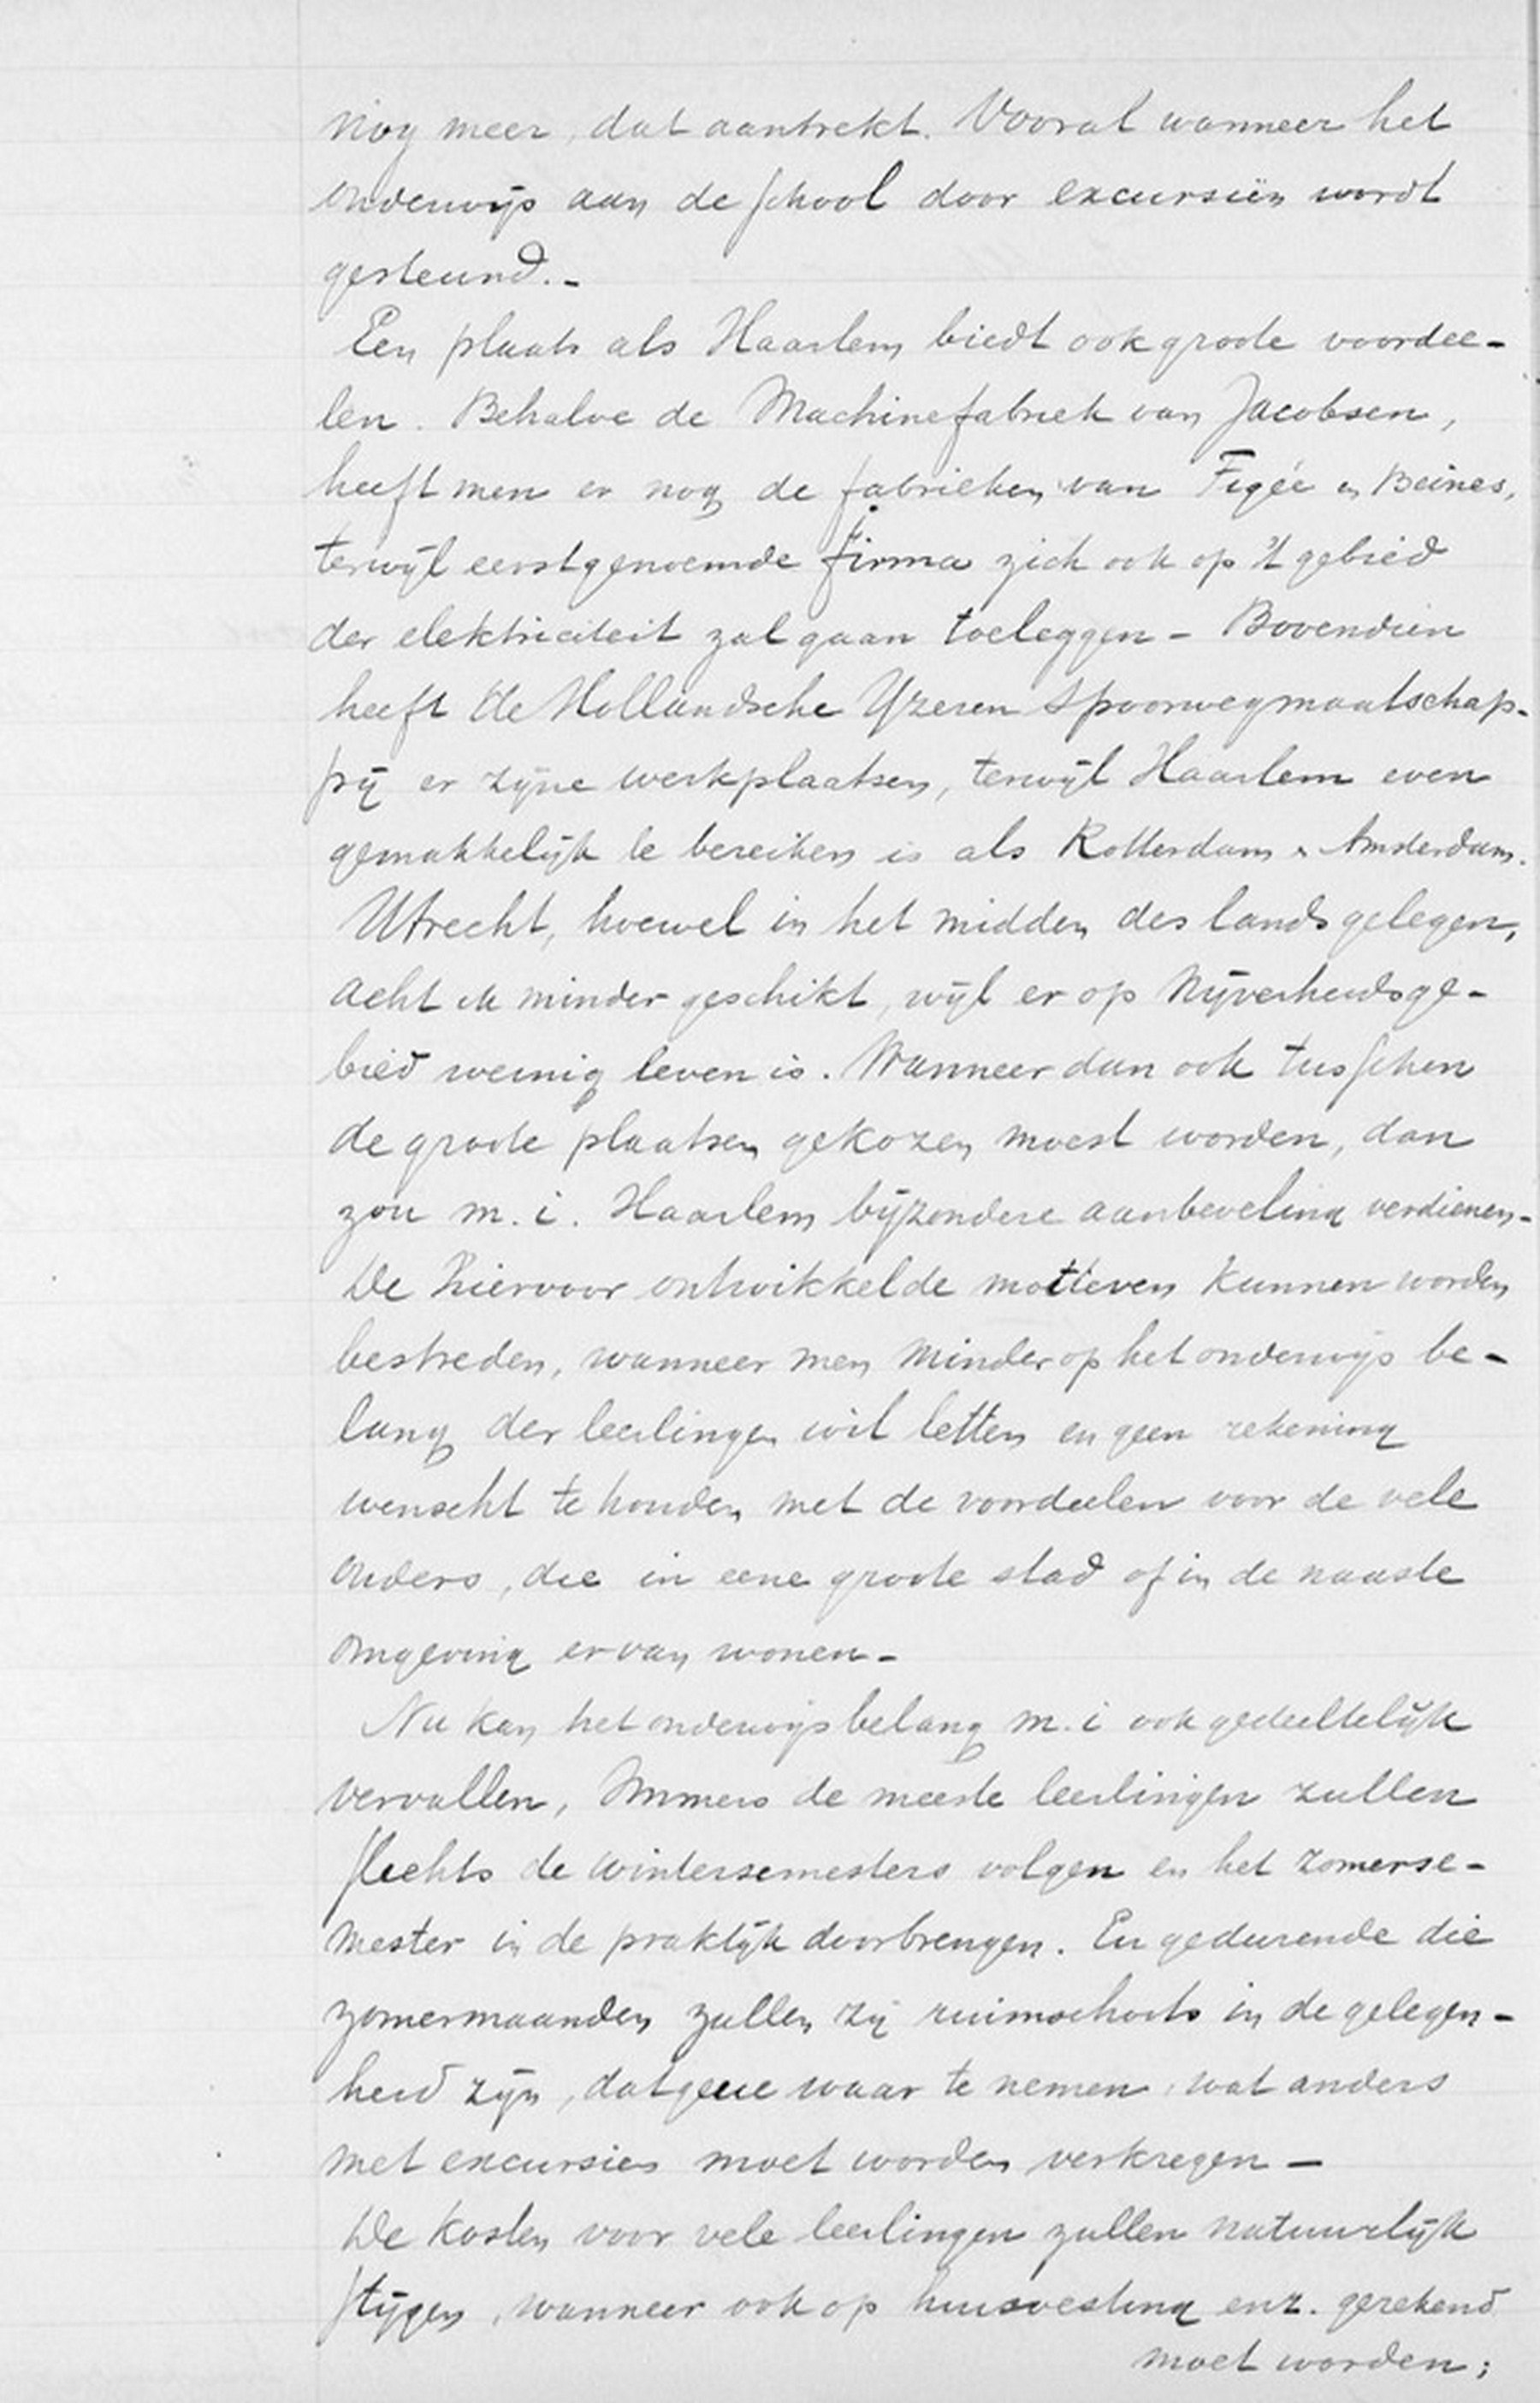 nog meer, dat aantrekt. Vooral wanneer het
onderwijs aan de school door excursiën wordt
gesteund. -
Een plaats als Haarlem biedt ook groote voordee-
len. Behalve de Machinefabriek van Jacobsen,
heeft men er nog de fabrieken van Figée en Beines,
terwijl eerstgenoemde firma zich ook op 't gebied
der elektriciteit zal gaan toeleggen - Bovendien
heeft de Hollandsche Yzeren Spoorwegmaatschap-
pij er zijne werkplaatsen, terwijl Haarlem even
gemakkelijk te bereiken is als Rotterdam & Amsterdam.
Utrecht, hoewel in het midden des lands gelegen,
acht ik minder geschikt, wijl er op Nijverheidsge-
bied weinig leven is. Wanneer dan ook tusschen
de groote plaatsen gekozen moest worden, dan
zou m. i. Haarlem bijzondere aanbeveling verdienen -
De hiervoor ontwikkelde motieven kunnen worden
bestreden, wanneer men minder op het onderwijs be-
lang der leerlingen wil letten en geen rekening
wenscht te houden met de voordeelen voor de vele
ouders, die in eene groote stad of in de naaste
omgeving ervan wonen -
Nu kan het onderwijsbelang m. i ook gedeeltelijk
vervallen, Immers de meeste leerlingen zullen
slechts de wintersemesters volgen en het zomerse-
mester in de praktijk doorbrengen. En gedurende die
zomermaanden zullen zij ruimschoots in de gelegen-
heid zijn, datgene waar te nemen, wat anders
met excursies moet worden verkregen -
De kosten voor vele leerlingen zullen natuurlijk
stijgen, wanneer ook op huisvesting enz. gerekend
moet worden;